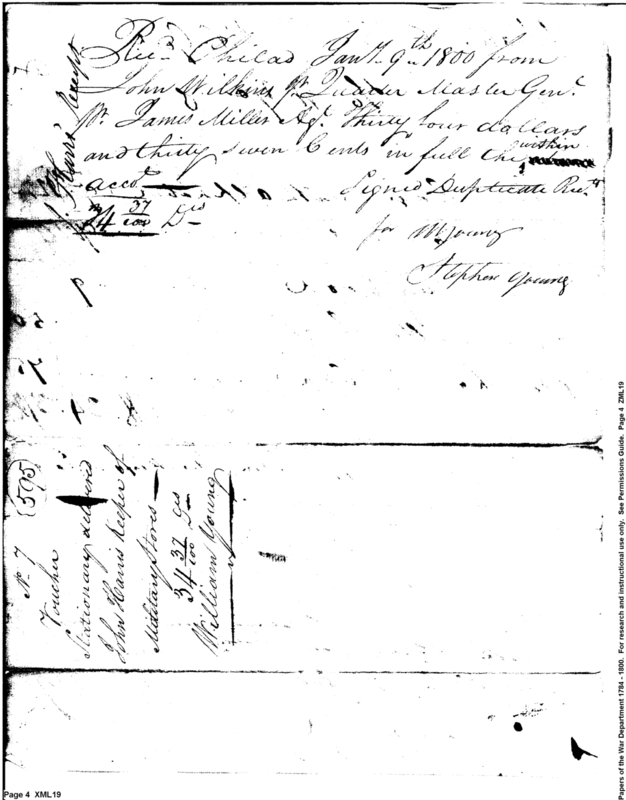 Rec.d Philad Jany. 9th 1800 from
John Wilkins Jr. Quarter Master Genl.
Pr. James Miller Agt. Thirty four dollars
and thirty seven Cents in full the within
acct. Signed Duplicate Rects
34 37/100 Ds
for W Young
Stephen Young
J. Harris' Receipt
No. 7 (595)
Voucher
Stationary delivered
John Harris Keeper of
Military Stores
34 37/100 Ds
William Young
Page 4 XML19
Papers of the War Department 1784 - 1800. For research and instructional use only. See Permissions Guide. Page 4 ZML19